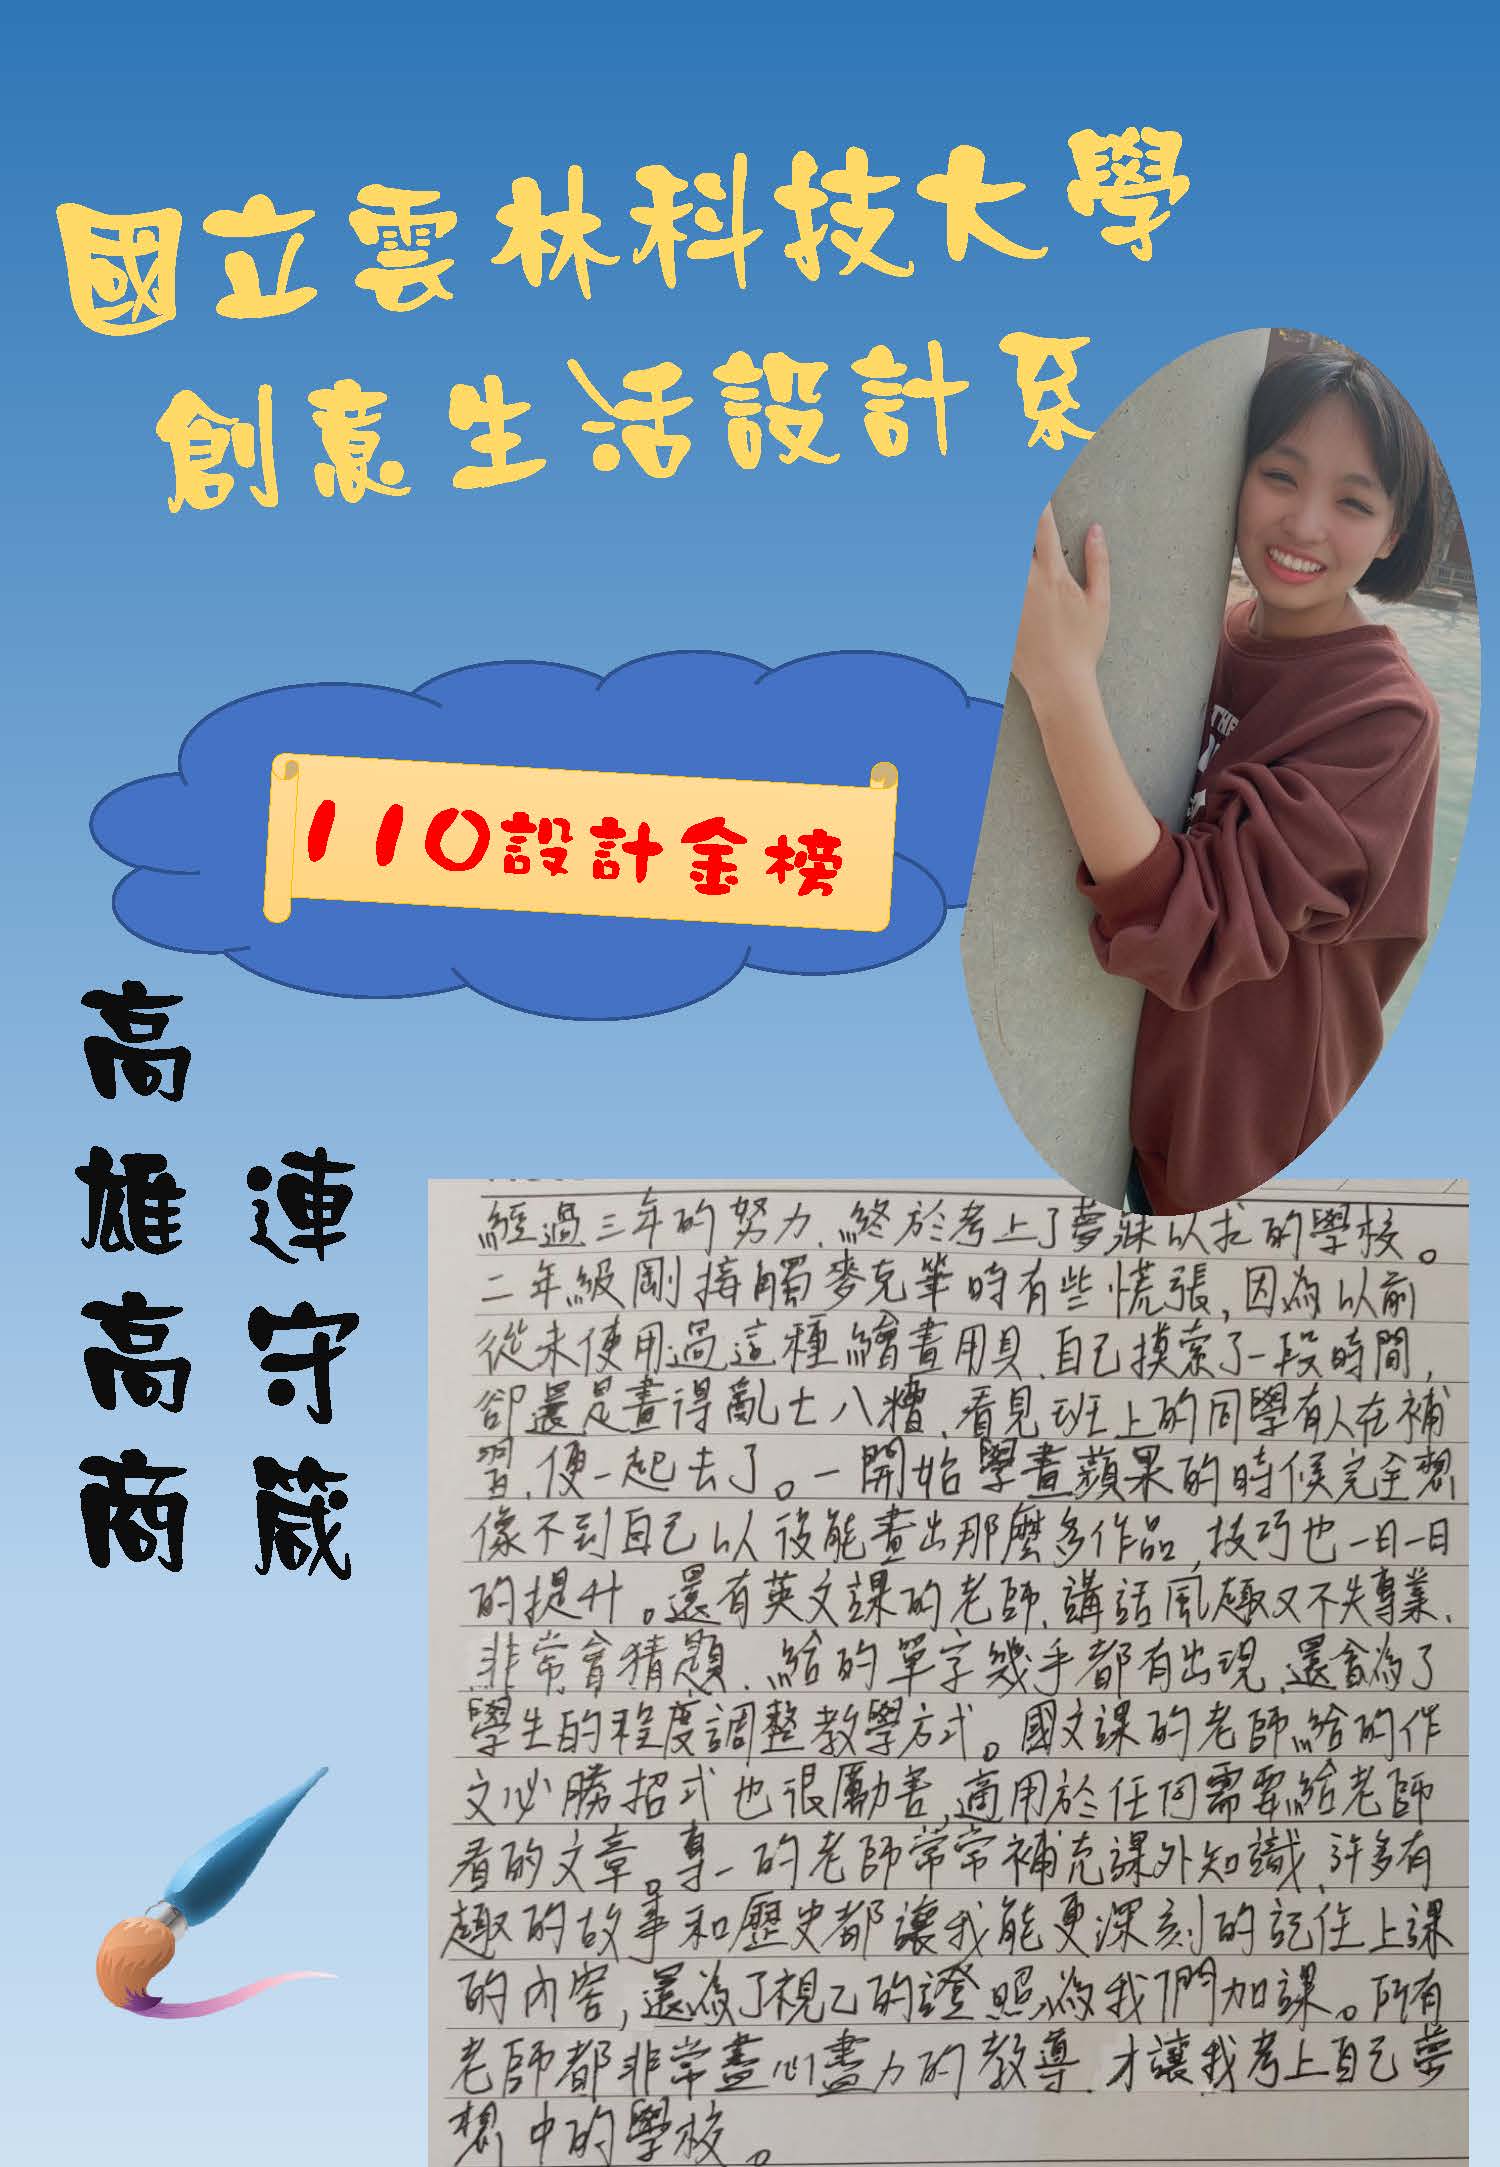 國立雲林科技大學
創意生活設計系
110設計金榜
高雄高商
連守箴
經過三年的努力,終於考上了夢寐以求的學校。
二年級剛接觸麥克筆時有些慌張,因為以前
從未使用過這種繪畫用具,自己摸索了一段時間,
卻還是畫得亂七八糟,看見班上的同學有人在補
習,便一起去了。一開始學畫蘋果的時候完全想
像不到自己以後能畫出那麼多作品,技巧也一日一日
的提升。還有英文課的老師,講話風趣又不失專業,
非常會猜題,給的單字幾乎都有出現,還會為了
學生的程度調整教學方式。國文課的老師給的作
文必勝招式也很厲害,適用於任何需要給老師
看的文章。專一的老師常常補充課外知識,許多有
趣的故事和歷史都讓我能更深刻的記住上課
的內容,還為了視乙的證照為我們加課。所有
老師都非常盡心盡力的教導,才讓我考上自己夢
想中的學校。